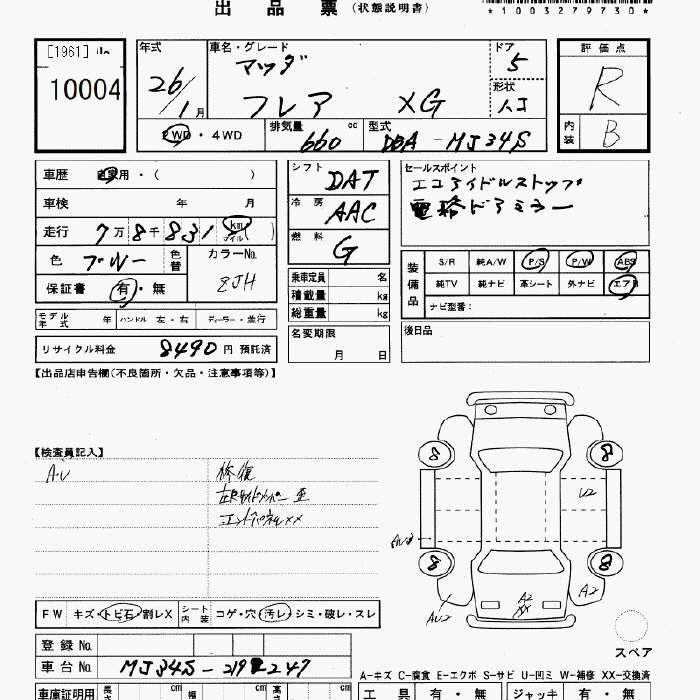 出品票 (状態説明書)
*1003279730*
[1961]
10004
年式 26/1月
車名・グレード マツダ
フレア XG
ドア 5
形状
評価点 R
内装 B
2WD・4WD
排気量 660 cc
型式 DBA-MJ34S
車歴 自家用・( )
車検 年 月
走行 7万8千831 km マイル ( )
色 ブルー 色替
カラーNo. ZJH
保証書 有・無
モデル年式 年 ハンドル 左・右 ディーラー・並行
リサイクル料金 8490 円 預託済
シフト DAT
冷房 AAC
燃料 G
乗車定員 名
積載量 kg
総重量 kg
名変期限
月 日
セールスポイント
エコアイドルストップ
電格ドアミラー
装備品
S/R 純A/W P/S P/W ABS
純TV 純ナビ 革シート 外ナビ エアB
ナビ型番:
後日品
【出品店申告欄(不良箇所・欠品・注意事項等)】
【検査員記入】
A.U
修復
エンドパネルXX
8 8
U2
8 8
AU2
A2
XX
A2
スペア
FW キズ・トビ石・割レX シート内装 コゲ・穴・汚レ・シミ・破レ・スレ
登録No.
車台No. MJ34S-219247
A-キズ C-腐食 E-エクボ S-サビ U-凹ミ W-補修 XX-交換済
車庫証明用 長さ cm 幅 cm 高さ cm
工具 有・無 ジャッキ 有・無